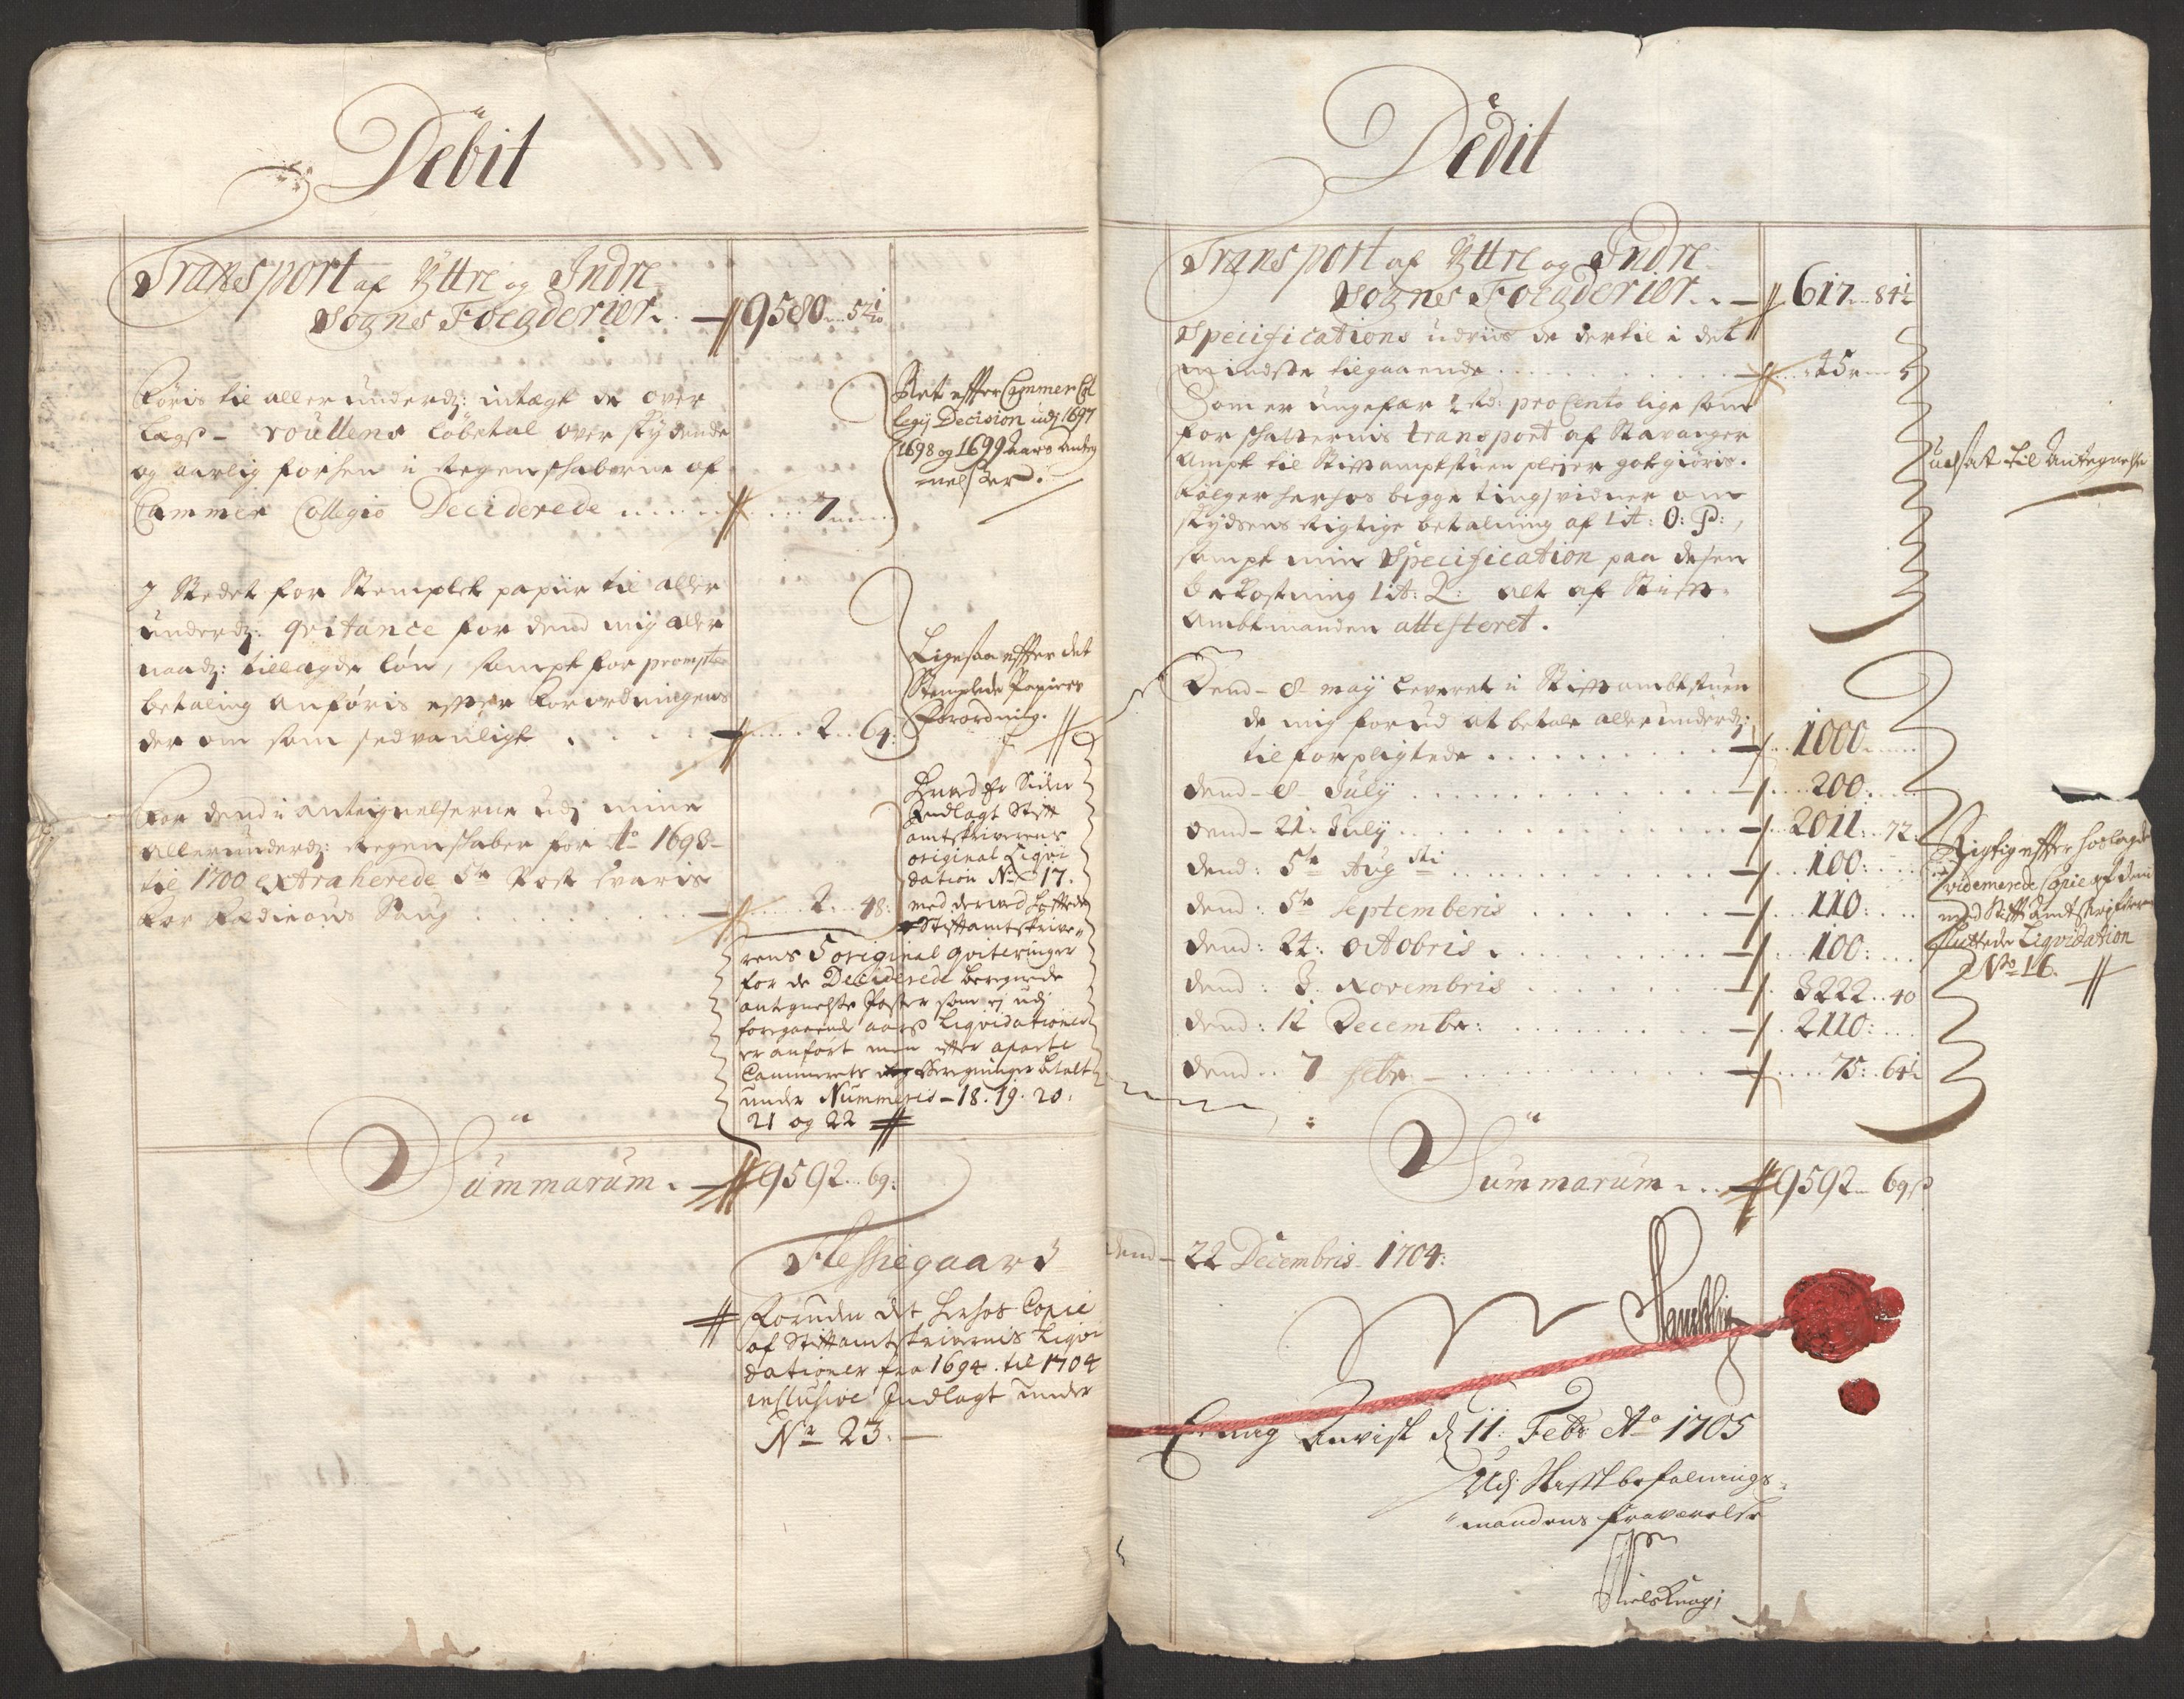 Debit
Transport af Yttre og Indre
Sogns Foegderier. 9580 .. 54 1/10
Føris til allerunderdz: indtægt de over
Lægs-roullens løbetal over skydende
og aarlig forhen i Regenschaberne af
Cammer Collegio Deciderede ...... 7 ....
Ret effter Cammer Col
legij Decision udj 1697
1698 og 1699 Aars Anteg
nelser.
J Stedet for Stemplet papiir til aller
underdz: qvitance for dend mig aller
naadz: tillagde løn, sampt for prompte
betaling anføris effter Forordningens
der om som sedvanligt . . . . 2 .. 64:
Ligesaa effter det
Stemplede Papiers
Forordning.
For dend i antegnelserne udj mine
allerunderdz: Regenskaber for Ao 1698
til 1700 extraherede 5te Post svaris
for Saug . . . . . 2 .. 48:
Hvad er Siden
Indlagt Stift
amtskriverens
original Liqvi
dation No 17.
med derved hefftede
Stiftamtskrive
rens 5 original qviteringer
for de Deciderede beregnede
antegnelse Poster som ej udj
foregaaende aars Liqvidationer
er anført men efter aparte
Cammerets Beregninger betalt
under Nummeris 18. 19. 20.
21 og 22
Summarum .. 9592 .. 69:
Flessiegaard
Foruden det herhos Copie
af Stiftamtskrivernis Liqvi
dationer fra 1694 til 1704
inclusive Indlagt under
Nr 23.
Dedit
Transport af Yttre og Indre
Sognes Foegderier .. 617 .. 84 1/2
Specifications udviis de dertil i det
mindste tilgaaende . . . . 45 .. 5
Som er ungefær 2 Rd: pro Cento lige som
for skatternis transport af Stavanger
Ampt til Stiftamptstuen plejer gotgiøris.
Følger herhos begge tingsvidner om
skydsens Rigtige betalning af Lit: O: P:,
sampt min Specification paa desen
bekostning Lit: Q: alt af Stift-
Ambtmanden attesteret.
udsat til Antegnelse
Dend 8 maij leveret i Stiftambtstuen
de mig forud at betale allerunderdz:
tilforpligtede . . . . . 1000 ....
dend 8 July . . . . . 200: ...
dend 21: July . . . . . 2011: .. 72.
dend: 5te Augsti . . . . . 100: ...
dend: 5te Septemberis . . . . . 110: ...
dend: 24: Octobris . . . . . 100: ...
dend: 3. Novembris . . . . . 3222 .. 40
dend: 12 Decembr: . . . . . 2110: ...
dend .. 7 febr. . . . . . 75: .. 64 1/2
Rigtig effter hoslagde
videmerede Copie af den
med Stift Amtskrifveren
sluttede Liqvidation
No 16.
Summarum ... 9592 .. 69 s
dend 22 Decembris 1704:
Er mig Anvist d 11: Febr Ao 1705
Udj Stiftbefalnings-
mandens fraværelse
Niels Knag